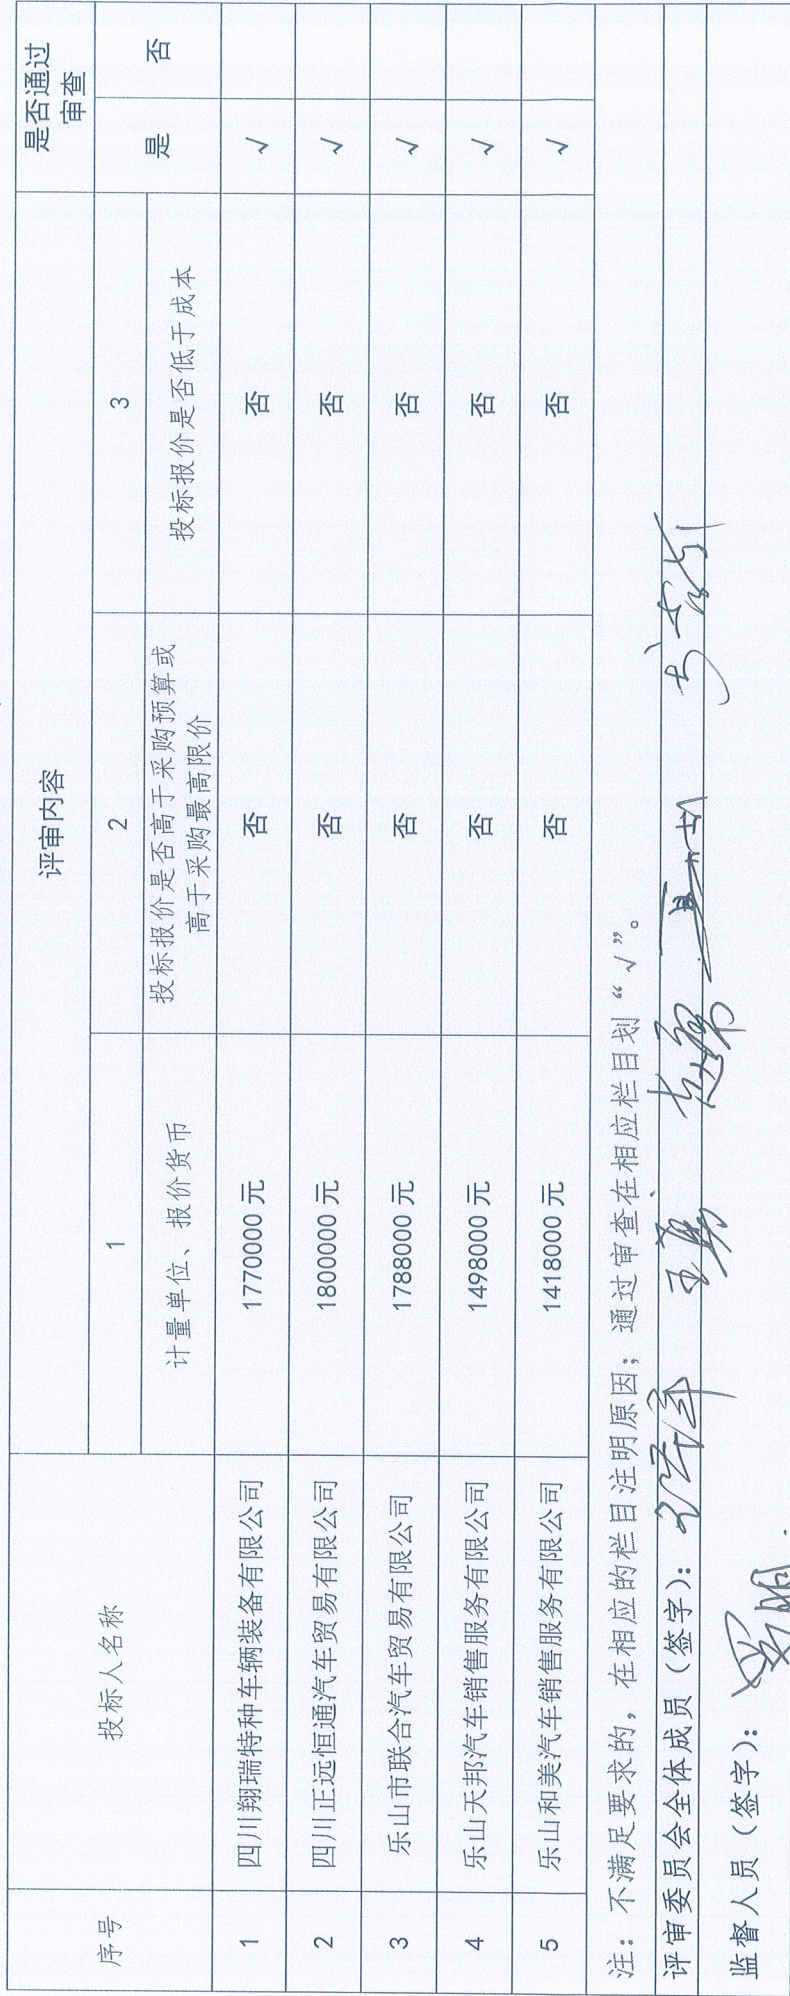 序号 投标人名称 评审内容 是否通过审查
1 2 3 是 否
计量单位、报价货币 投标报价是否高于采购预算或高于采购最高限价 投标报价是否低于成本
1 四川翔瑞特种车辆装备有限公司 1770000 元 否 否 √
2 四川正远恒通汽车贸易有限公司 1800000 元 否 否 √
3 乐山市联合汽车贸易有限公司 1788000 元 否 否 √
4 乐山天邦汽车销售服务有限公司 1498000 元 否 否 √
5 乐山和美汽车销售服务有限公司 1418000 元 否 否 √
注：不满足要求的，在相应的栏目注明原因；通过审查在相应栏目划“√”。
评审委员会全体成员（签字）：
监督人员（签字）：